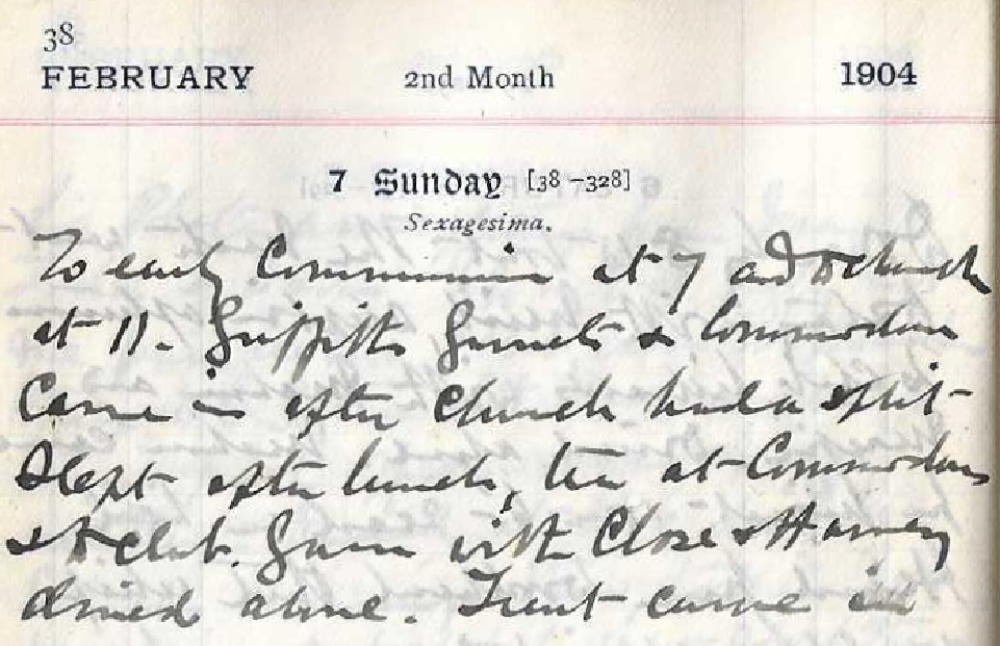 38
FEBRUARY 2nd Month 1904
7 Sunday [38-328]
Sexagesima.
To early Communion at 7 and to church
at 11. Griffiths & Commodore
Came in after church had a split
Slept after lunch, tea at Commodores
& to club. with Close & Harvey
dined alone. Trent came in